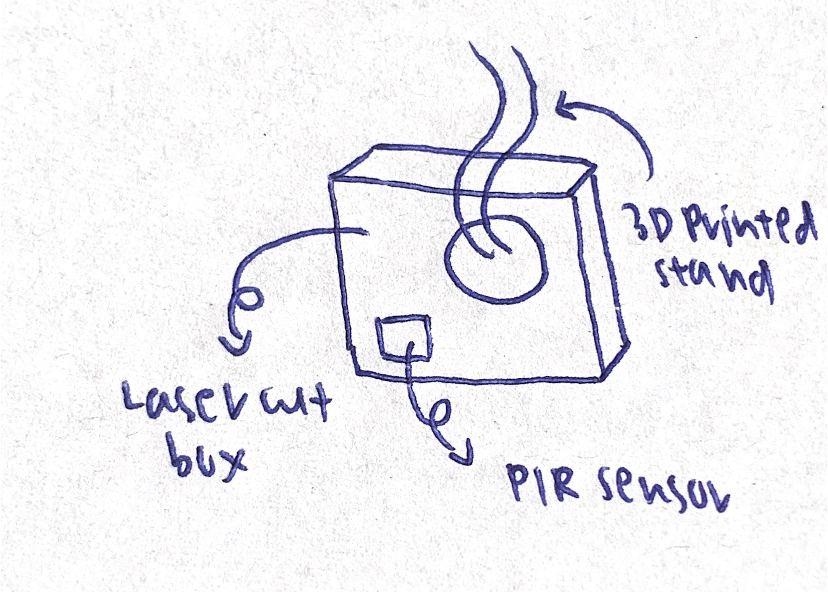 3D Printed
stand
Laser cut
box
PIR sensor